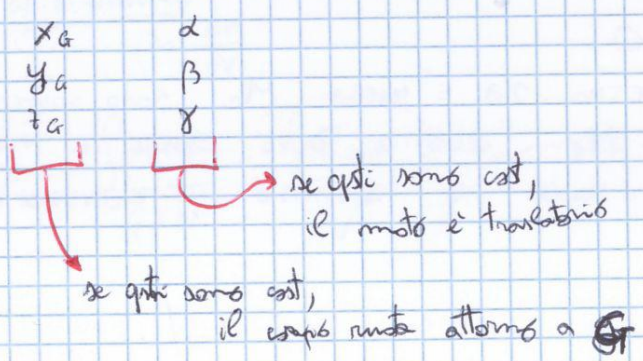 x_G α
y_G β
z_G γ
se qsti sono cost,
il moto è traslatorio
se qsti sono cost,
il corpo ruota attorno a G